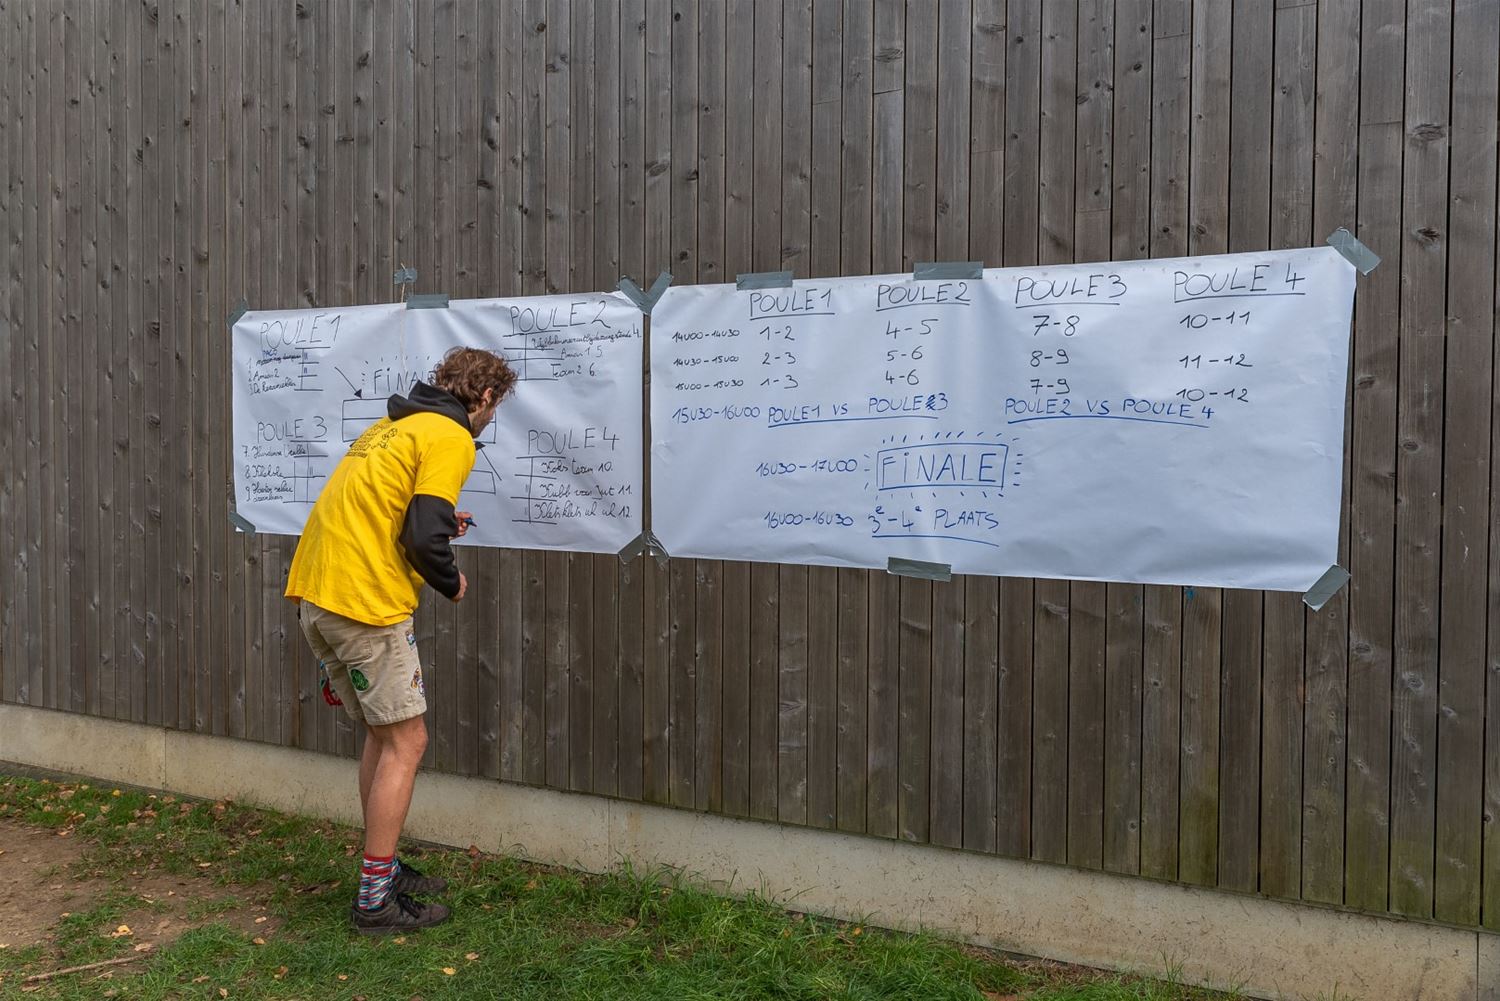 POULE 1
2 Amon 2
FINAL
POULE 2
Amon 1 5.
Team 2 6.
POULE 3
7.
8
9
POULE 4
Koks team 10.
Kubb van Jut 11.
12.
POULE 1 POULE 2 POULE 3 POULE 4
14U00-14U30 1-2 4-5 7-8 10-11
14U30-15U00 2-3 5-6 8-9 11-12
15U00-15U30 1-3 4-6 7-9 10-12
15U30-16U00 POULE 1 VS POULE 3 POULE 2 VS POULE 4
16U30-17U00 FINALE
16U00-16U30 3e-4e PLAATS